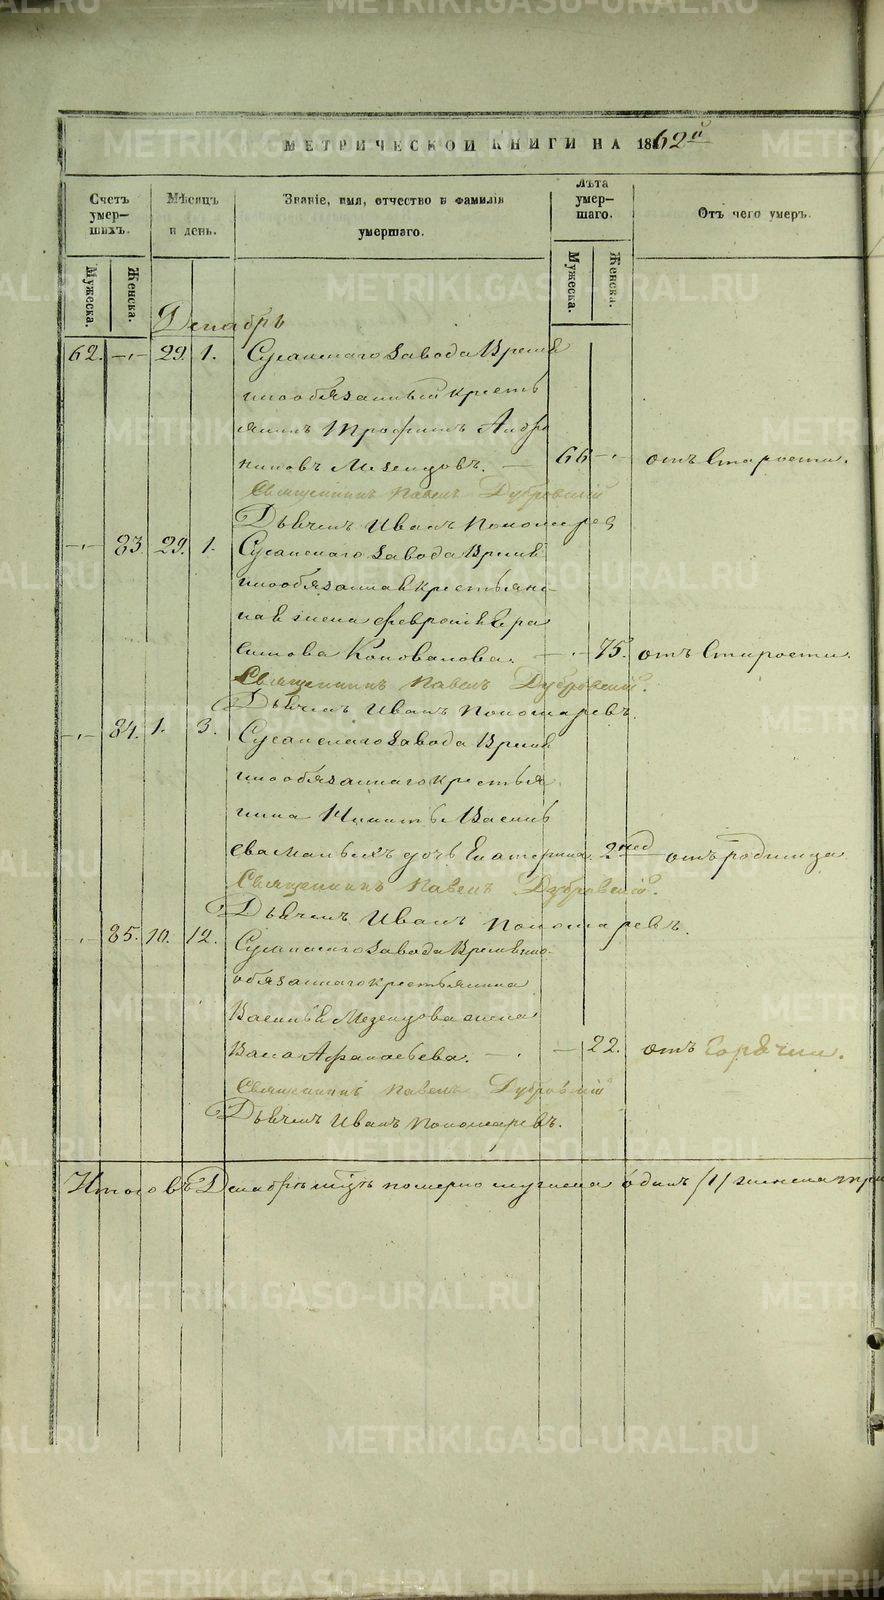 МЕТРИЧЕСКОЙ КНИГИ НА 1862й
Счетъ умер-шихъ.
Мужеска.
Женска.
Мѣсяцъ и день.
Званіе, имя, отчество и фамилія умершаго.
Лѣта умер-шаго.
Мужеска.
Женска.
Отъ чего умеръ.
Декабрь
62. 29. 1. Сусанскаго Завода Времен
нообязанный кресть
янинъ Трофимъ Андро
никовъ Мезенцовъ. 66 отъ Старости.
Священникъ Павелъ Дубровскій
Дьячекъ Иванъ Пономарев
83. 29. 1. Сусанскаго Завода Времен
нообязаннаго крестьяни
на жена Феврония Гера
симова Коновалова. 75. отъ Старости.
Священникъ Павелъ Дубровскій.
Дьячекъ Иванъ Пономаревъ.
84. 1. 3. Сусанскаго Завода Време
ннообязаннаго крестья
нина Василь
ева дочь Екатерина. 2 нед отъ родимца
Священникъ Павелъ Дубровскій.
Дьячекъ Иванъ Пономаревъ.
85. 10. 12. Сусанскаго Завода Временно-
обязаннаго крестьянина
Василья Мезенцова жена
Васса Афанасьева. 22. отъ Горячки.
Священникъ Павелъ Дубровскій
Дьячекъ Иванъ Пономаревъ.
Итого въ Декабрѣ мцѣ померло мужеска одинъ /1/ женска три
METRIKI.GASO-URAL.RU